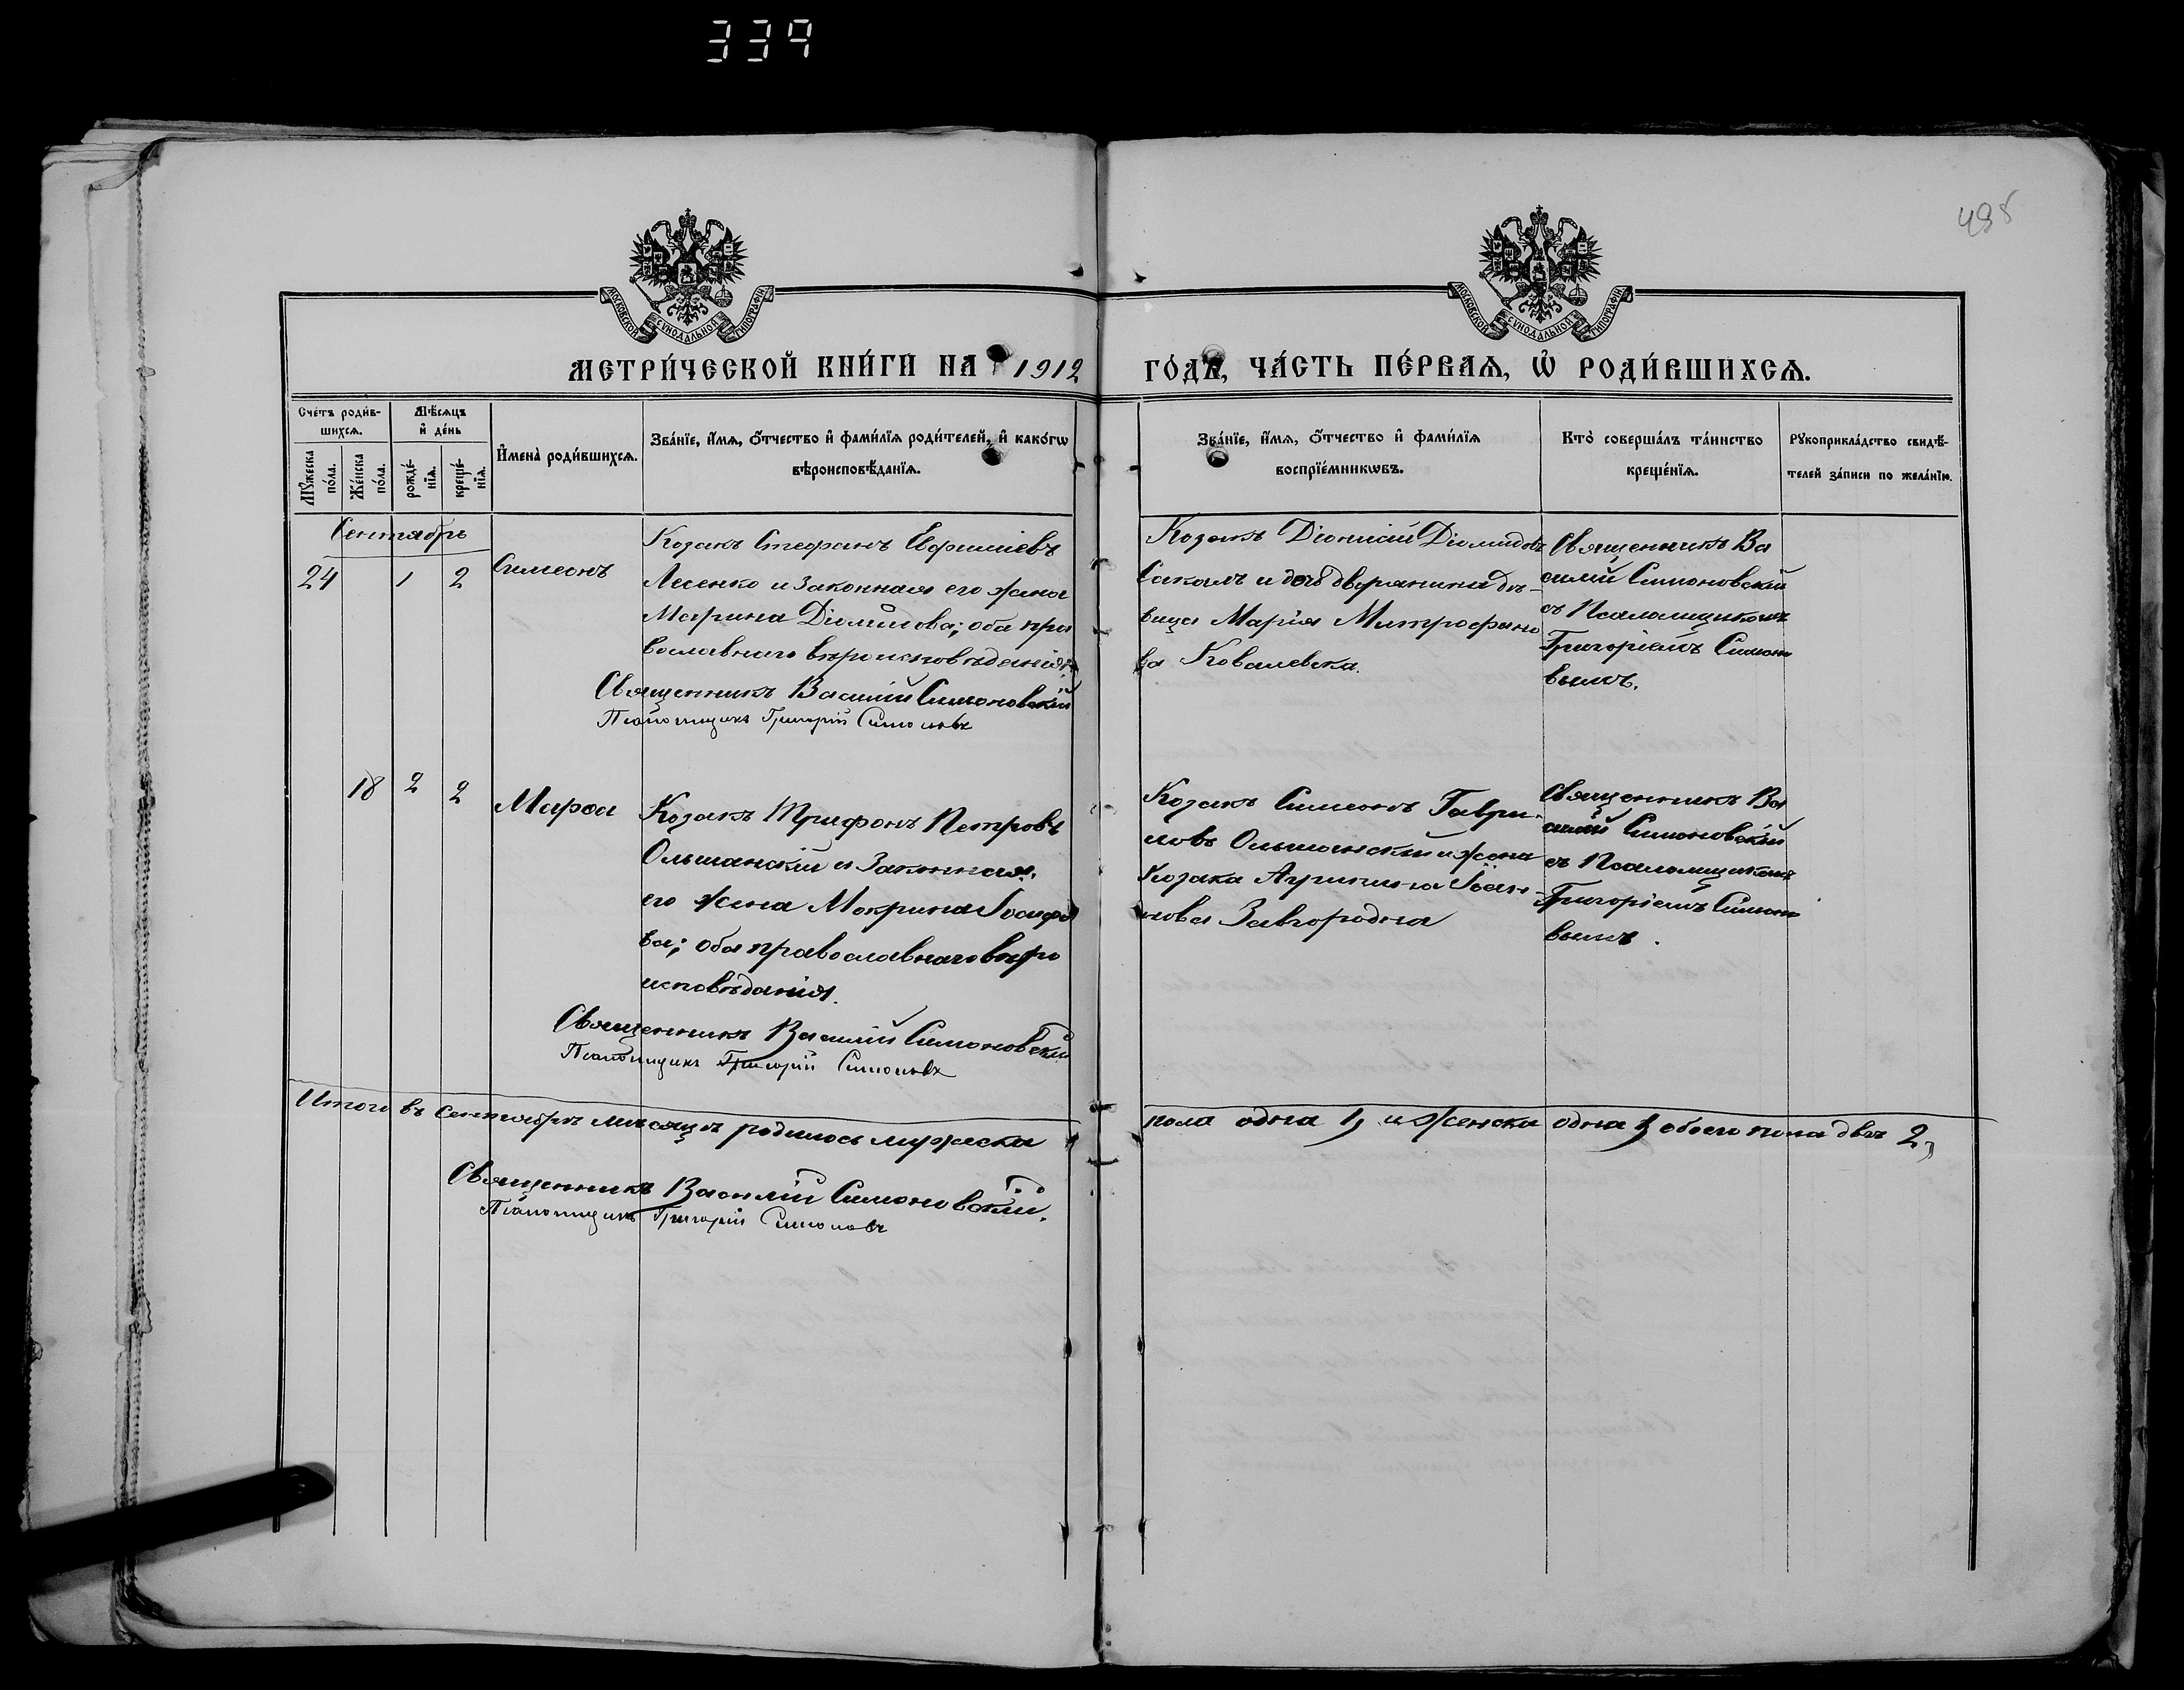 339
498
МОСКОВСКОЙ СѴНОДАЛЬНОЙ ТИПОГРАФІИ
МОСКОВСКОЙ СѴНОДАЛЬНОЙ ТИПОГРАФІИ
МЕТРИ́ЧЕСКОЙ КНИ́ГИ НА 1912
ГО́ДЪ, ЧА́СТЬ ПЕ́РВАѦ, Ѡ҆ РОДИ́ВШИХСѦ.
Сче́тъ роди́в-
шихсѧ.
Мѣ́сѧцъ
и҆ де́нь
Мꙋ́жеска
по́ла.
Же́нска
по́ла.
рожде́-
нїѧ.
креще́-
нїѧ.
И҆мена̀ роди́вшихсѧ.
Зва́нїе, и҆́мѧ, ѻ҆́тчество и҆ фами́лїѧ роди́телей, и҆ како́гѡ
вѣроисповѣ́данїѧ.
Зва́нїе, и҆́мѧ, ѻ҆́тчество и҆ фами́лїѧ
воспрїе́мникѡвъ.
Кто̀ соверша́лъ та́инство
креще́нїѧ.
Рꙋкоприкла́дство свидѣ́-
телей за́писи по жела́нїю.
Сентябрь
24 1 2
Симеонъ
Козакъ Стефанъ Евфиміевъ
Лесенко и законная его жена
Марина Діомидова; оба пра
вославнаго вѣроисповѣданія.
Священникъ Василій Симоновскій
Псаломщикъ Григорій Симоновъ
Козакъ Діонисій Діомидовъ
Сакалъ и дочь дворянина дѣ-
вица Марія Митрофано
ва Ковалевска.
Священникъ Ва
силій Симоновскій
съ Псаломщикомъ
Григоріемъ Симоно
вымъ.
18 2 2
Марѳа
Козакъ Трифонъ Петровъ
Ольшанскій и законная
его жена Макрина Іосифо
ва; оба православнаго вѣро
исповѣданія.
Священникъ Василій Симоновскій
Псаломщикъ Григорій Симоновъ
Козакъ Симеонъ Гаври-
ловъ Ольшанскій и жена
козака Агрипина Іоан-
нова Завгородна
Священникъ Ва
силій Симоновскій
съ Псаломщикомъ
Григоріемъ Симоно
вымъ.
Итого въ Сентябрѣ мѣсяцѣ родилось мужеска
пола одна 1, и женска одна 1, обоего пола два 2,
Священникъ Василій Симоновскій.
Псаломщикъ Григорій Симоновъ